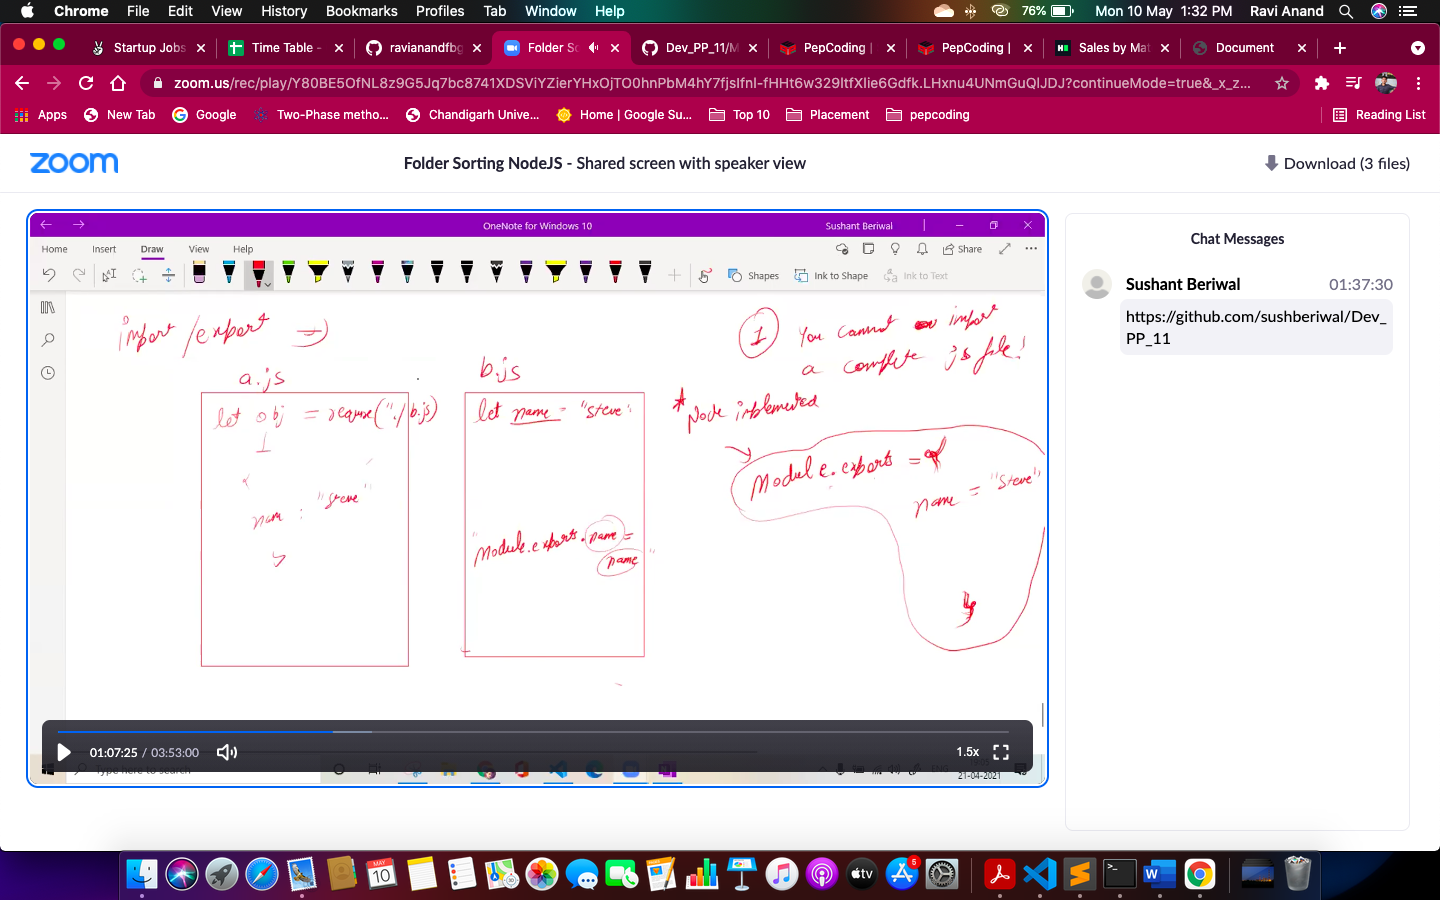 Chrome File Edit View History Bookmarks Profiles Tab Window Help 76% Mon 10 May 1:32 PM Ravi Anand
Startup Jobs Time Table - ravianandfbg Folder So Dev_PP_11/M PepCoding | PepCoding | Sales by Mat Document
zoom.us/rec/play/Y80BE5OfNL8z9G5Jq7bc8741XDSViYZierYHxOjTO0hnPbM4hY7fjsIfnl-fHHt6w329ltfXlie6Gdfk.LHxnu4UNmGuQlJDJ?continueMode=true&_x_z...
Apps New Tab Google Two-Phase metho... Chandigarh Unive... Home | Google Su... Top 10 Placement pepcoding Reading List
zoom Folder Sorting NodeJS - Shared screen with speaker view Download (3 files)
OneNote for Windows 10 Sushant Beriwal
Home Insert Draw View Help Share
Shapes Ink to Shape Ink to Text
import /export =>
1 You cannot import
a complete js file!
a.js
let obj = require("./b.js)
name : "Steve"
b.js
let name = "Steve"
"Module.exports.name =
name "
* Node implemented
Module.exports = {
name = "Steve"
}
01:07:25 / 03:53:00 1.5x
Type here to search
ENG
21-04-2021
Chat Messages
Sushant Beriwal 01:37:30
https://github.com/sushberiwal/Dev_
PP_11
MAY
10
tv
5